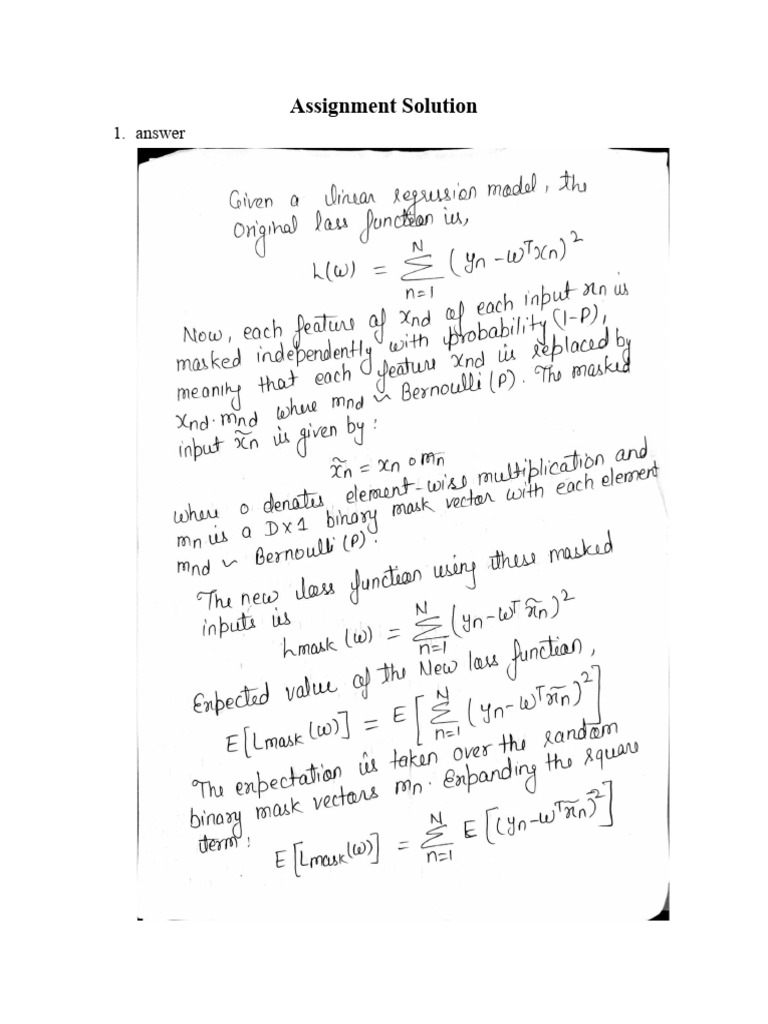 Assignment Solution
1. answer
Given a linear regression model, the
original loss function is,
L(ω) = Σ_{n=1}^{N} (y_n - ω^T x_n)^2
Now, each feature of x_nd of each input x_n is
masked independently with probability (1-P),
meaning that each feature x_nd is replaced by
x_nd · m_nd where m_nd ~ Bernoulli (P). The masked
input x̃_n is given by:
x̃_n = x_n ∘ m_n
where ∘ denotes element-wise multiplication and
m_n is a D×1 binary mask vector with each element
m_nd ~ Bernoulli (P).
The new loss function using these masked
inputs is
L_mask (ω) = Σ_{n=1}^{N} (y_n - ω^T x̃_n)^2
Expected value of the New loss function,
E[L_mask (ω)] = E [ Σ_{n=1}^{N} (y_n - ω^T x̃_n)^2 ]
The expectation is taken over the random
binary mask vectors m_n. Expanding the square
term:
E [L_mask (ω)] = Σ_{n=1}^{N} E [(y_n - ω^T x̃_n)^2]